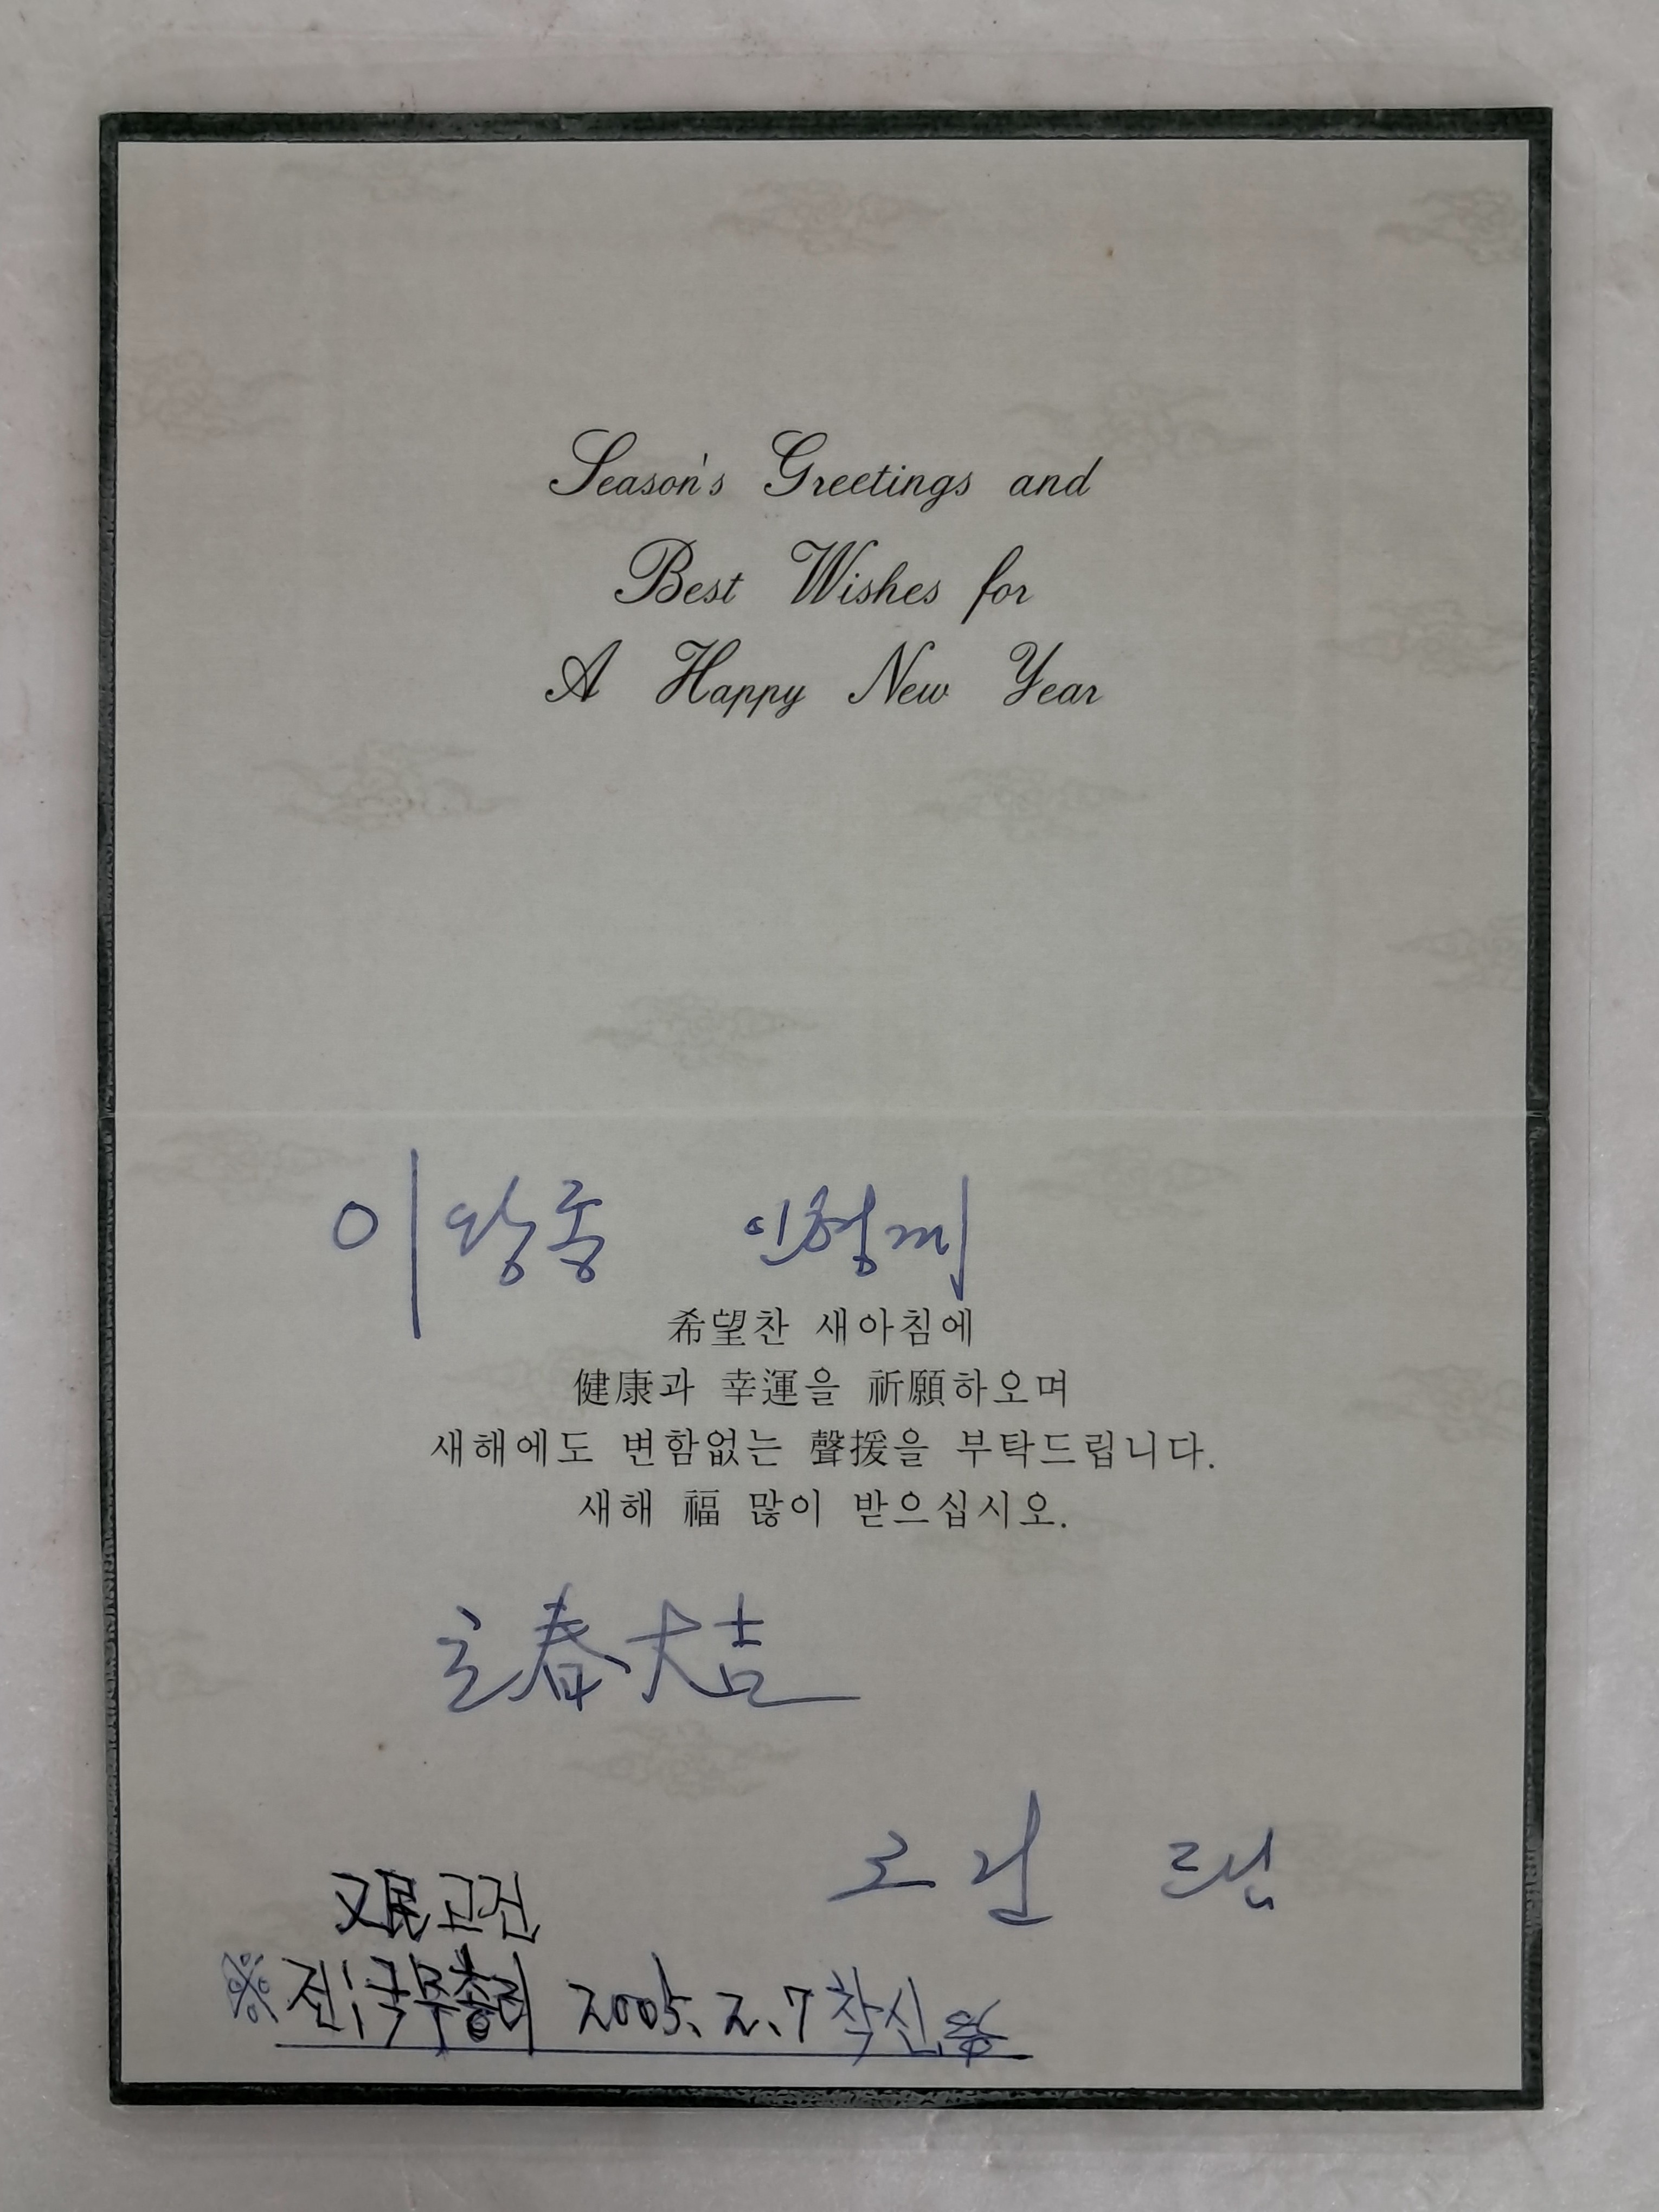 Season's Greetings and
Best Wishes for
A Happy New Year
이왕종 인형께
希望찬 새아침에
健康과 幸運을 祈願하오며
새해에도 변함없는 聲援을 부탁드립니다.
새해 福 많이 받으십시오.
立春大吉
고건 드림
又民 고건
※전;국무총리 2005. 2. 7 착신※